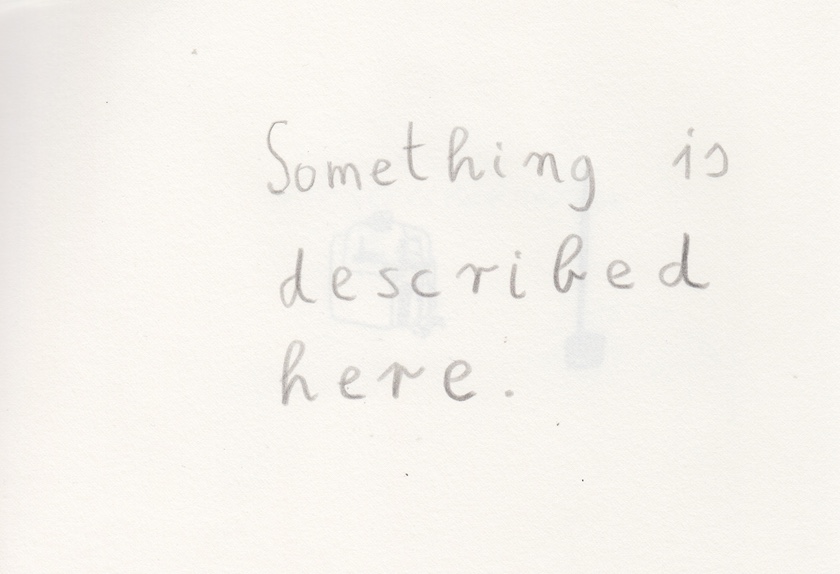 Something is
described
here.